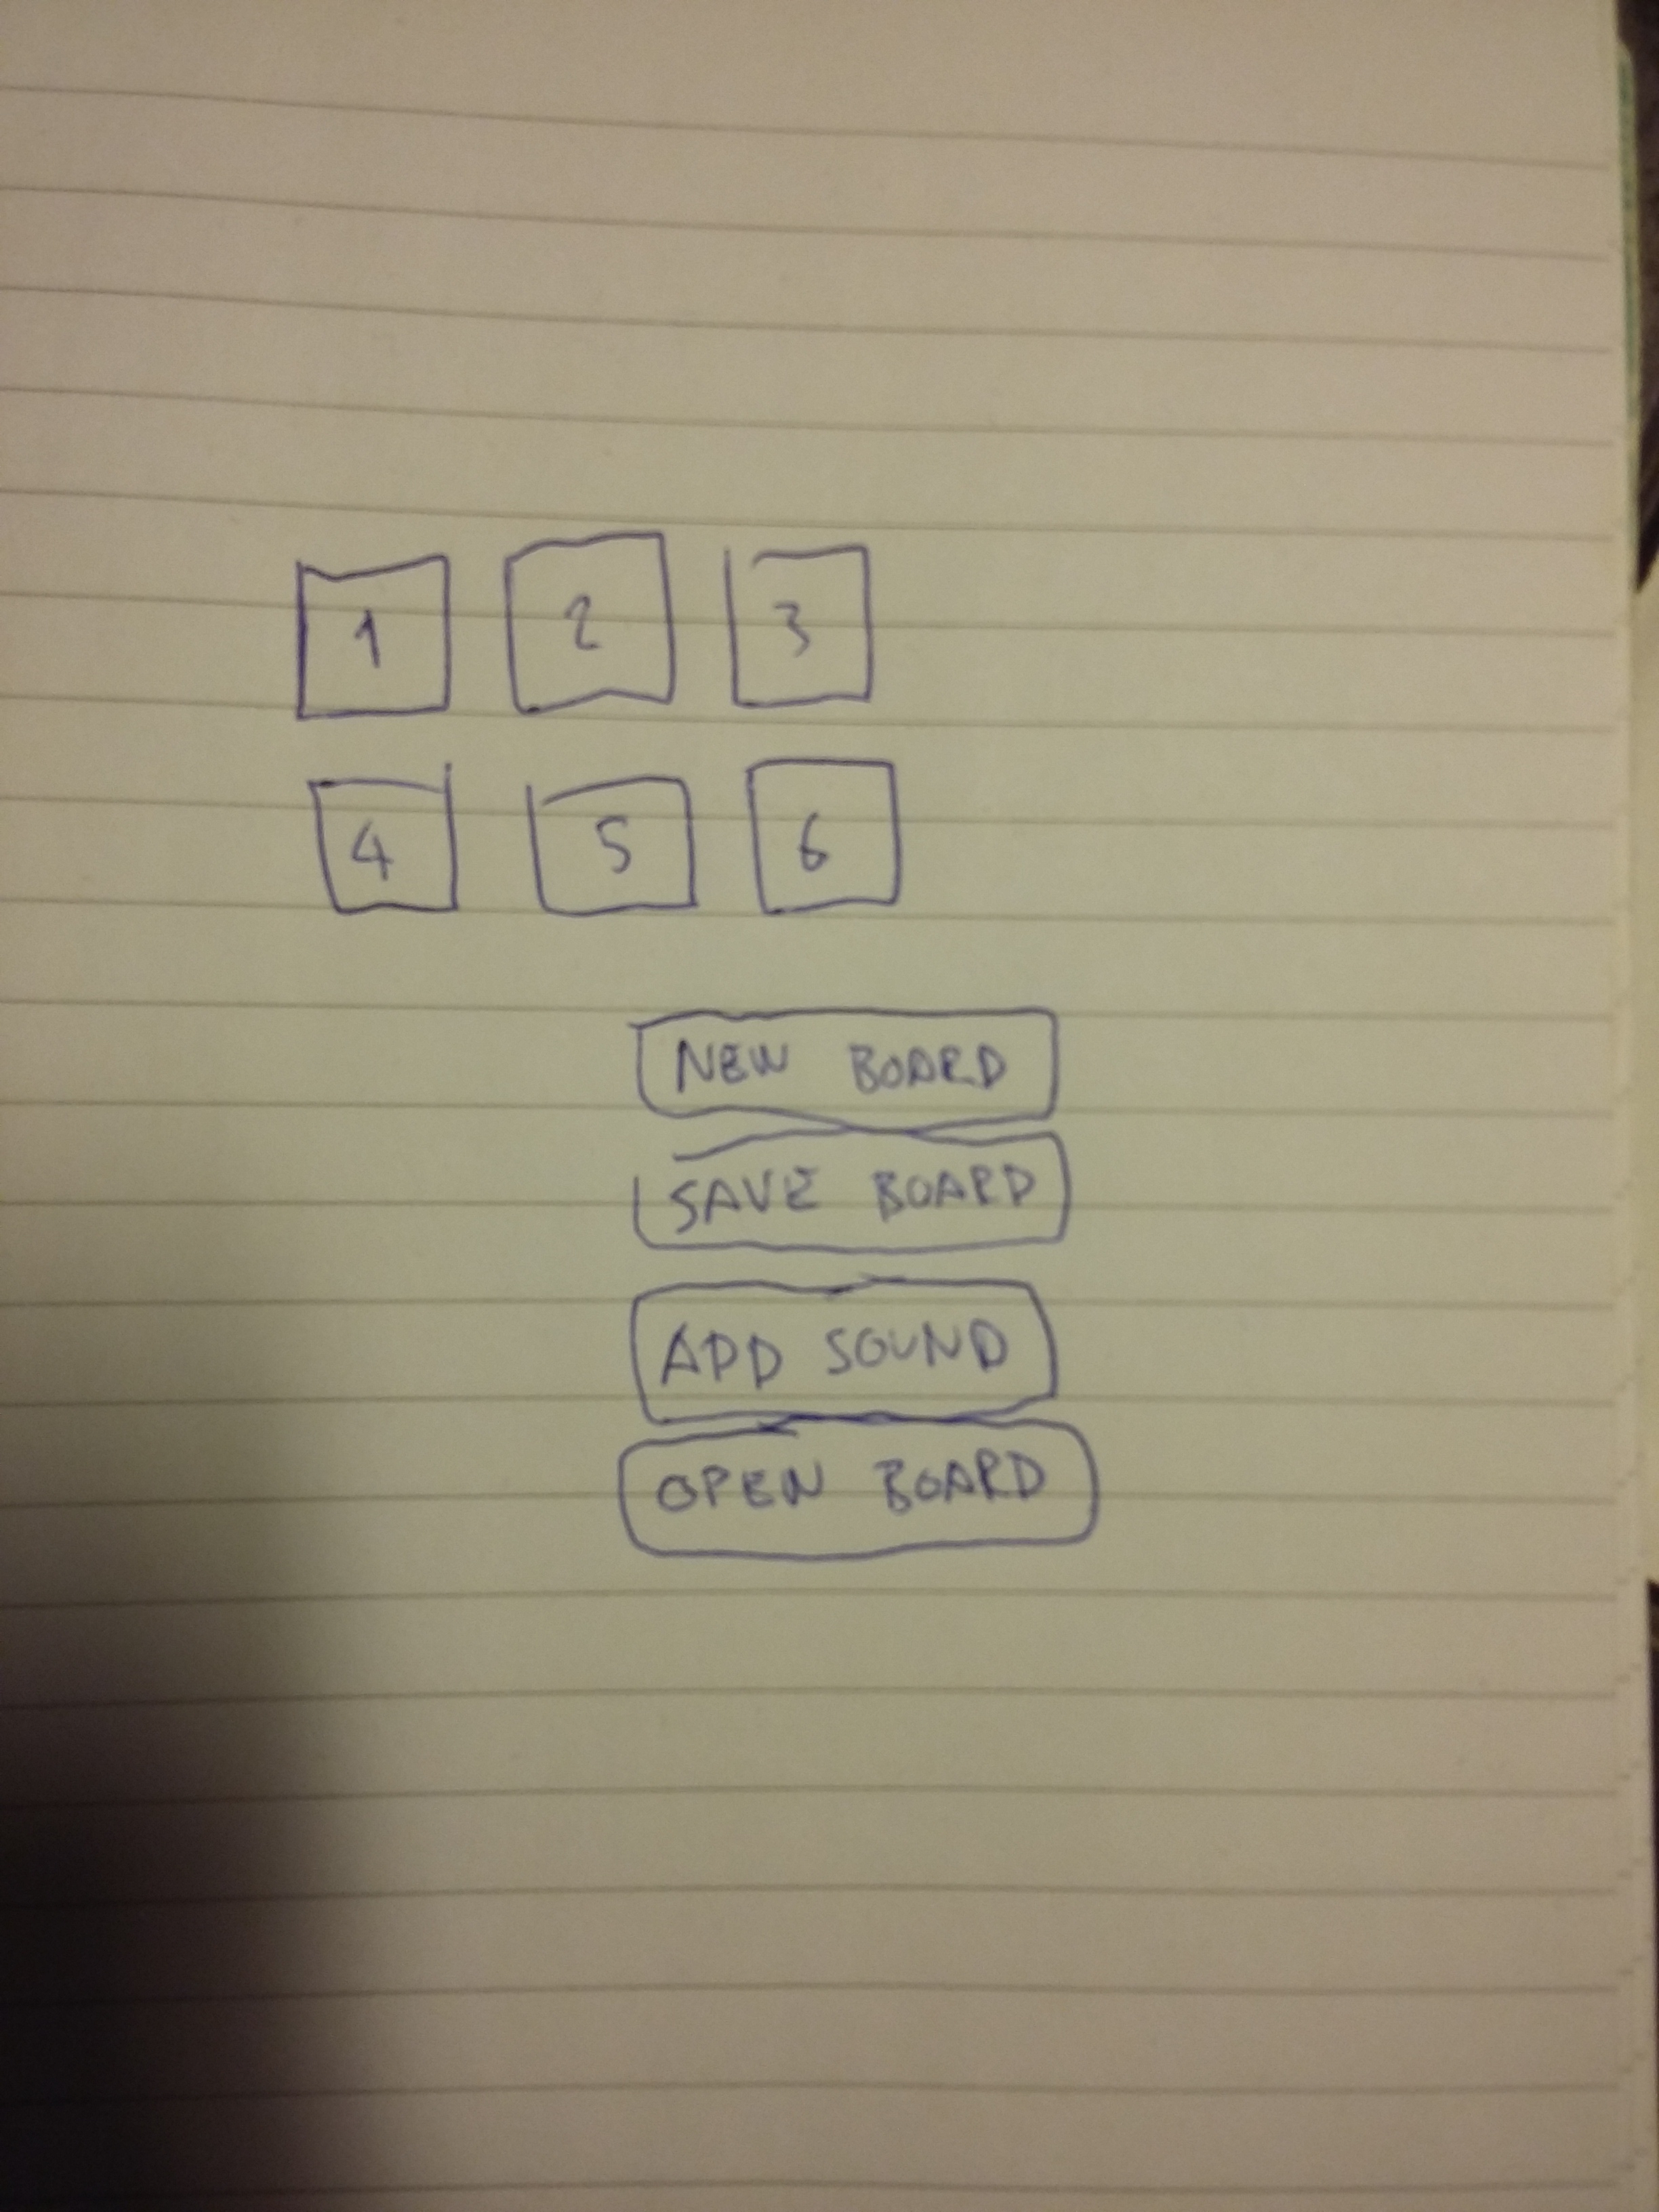 1 2 3
4 5 6
NEW BOARD
SAVE BOARD
ADD SOUND
OPEN BOARD